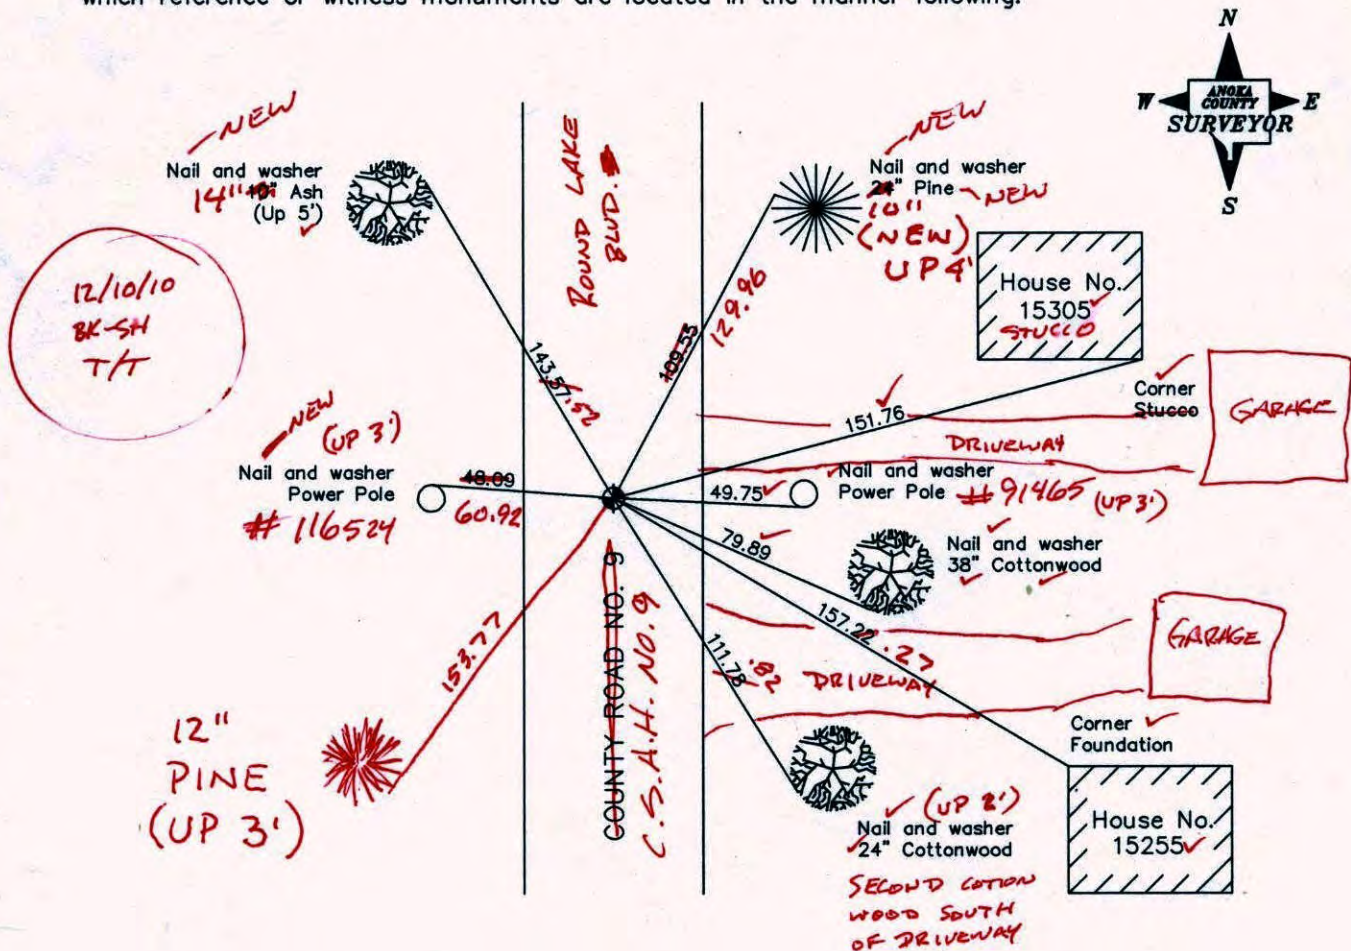 which reference or witness monuments are located in the manner following:
N
W
ANOKA
COUNTY
E
SURVEYOR
S
NEW
Nail and washer
14" 10" Ash
(Up 5')
ROUND LAKE
BLVD.
NEW
Nail and washer
24" Pine NEW
10"
(NEW)
UP 4'
House No.
15305
STUCCO
12/10/10
BK-SH
T/T
143.57 .52
109.55
129.96
151.76
Corner
Stucco
GARAGE
DRIVEWAY
NEW
(UP 3')
Nail and washer
Power Pole
# 116524
48.09
60.92
49.75
Nail and washer
Power Pole # 91465 (UP 3')
79.89
Nail and washer
38" Cottonwood
157.22 .27
GARAGE
111.78 .82
DRIVEWAY
153.77
COUNTY ROAD NO. 9
C.S.A.H. NO. 9
12"
PINE
(UP 3')
Corner
Foundation
(UP 2')
Nail and washer
24" Cottonwood
House No.
15255
SECOND COTTON
WOOD SOUTH
OF DRIVEWAY